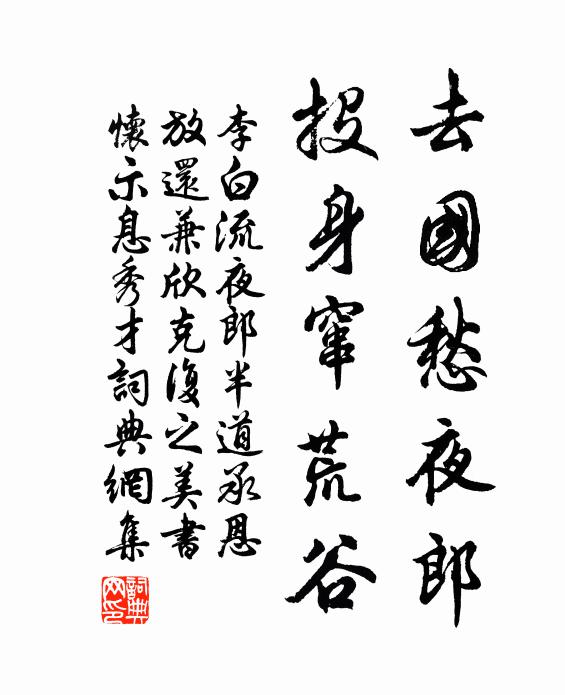 去國愁夜郎
投身窜荒谷
李白流夜郎半道承恩
放還兼欣克復之美書
懷示息秀才詞典網集
詞典
网印